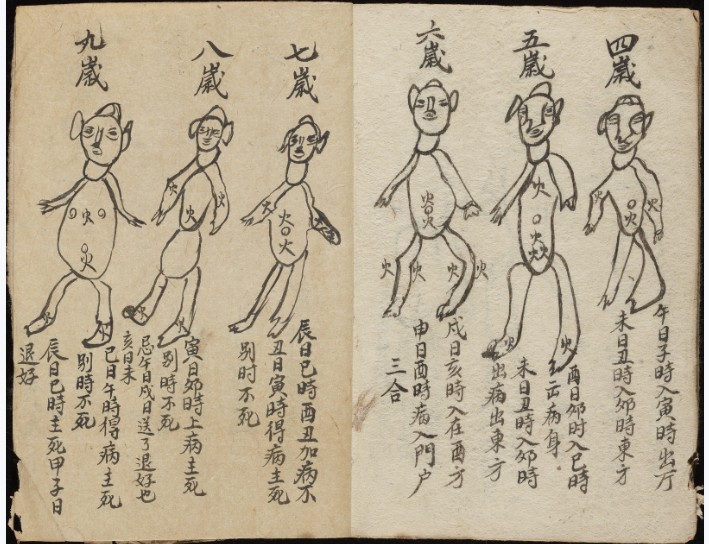 四歲
火
火
火
午日子時入寅時出厅
未日丑時入夘時東方
五歲
火
火
火火
火
火
酉日夘时入巳時
病身
未日丑時入夘時
出病出東方
六歲
火
火
火 火 火 火
戌日亥時入在酉方
申日酉時病入門户
三合
七歲
火
火
火
辰日巳時酉丑加病不
丑日寅時得病主死
別时不死
八歲
火
火
火
火
寅日夘時上病主死
別時不死
忌午日戌日送了退好也
亥日未
九歲
火
火
火
巳日午時得病主死
別時不死
辰日巳時主死甲子日
退好